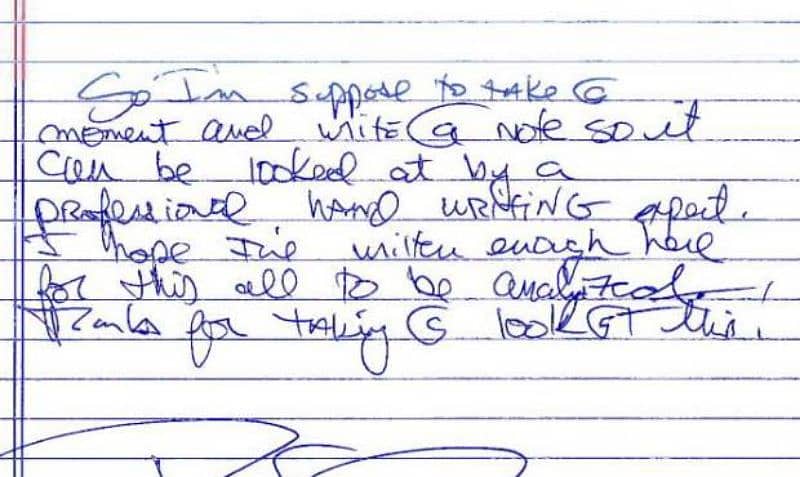 So I'm suppose to take a
moment and write a note so it
can be looked at by a
professional hand writing expert.
I hope I've written enough here
for this all to be analyzed.
Thanks for taking a look at this.